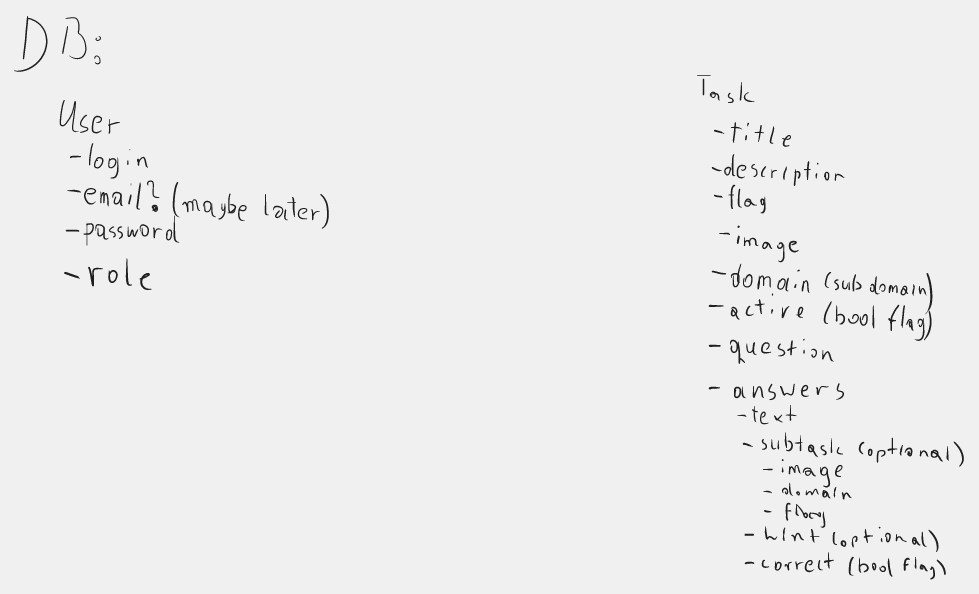 DB:
User
-login
-email? (maybe later)
-password
-role
Task
-title
-description
-flag
-image
-domain (subdomain)
-active (bool flag)
-question
-answers
-text
-subtask (optional)
-image
-domain
-flag
-hint (optional)
-correct (bool flag)